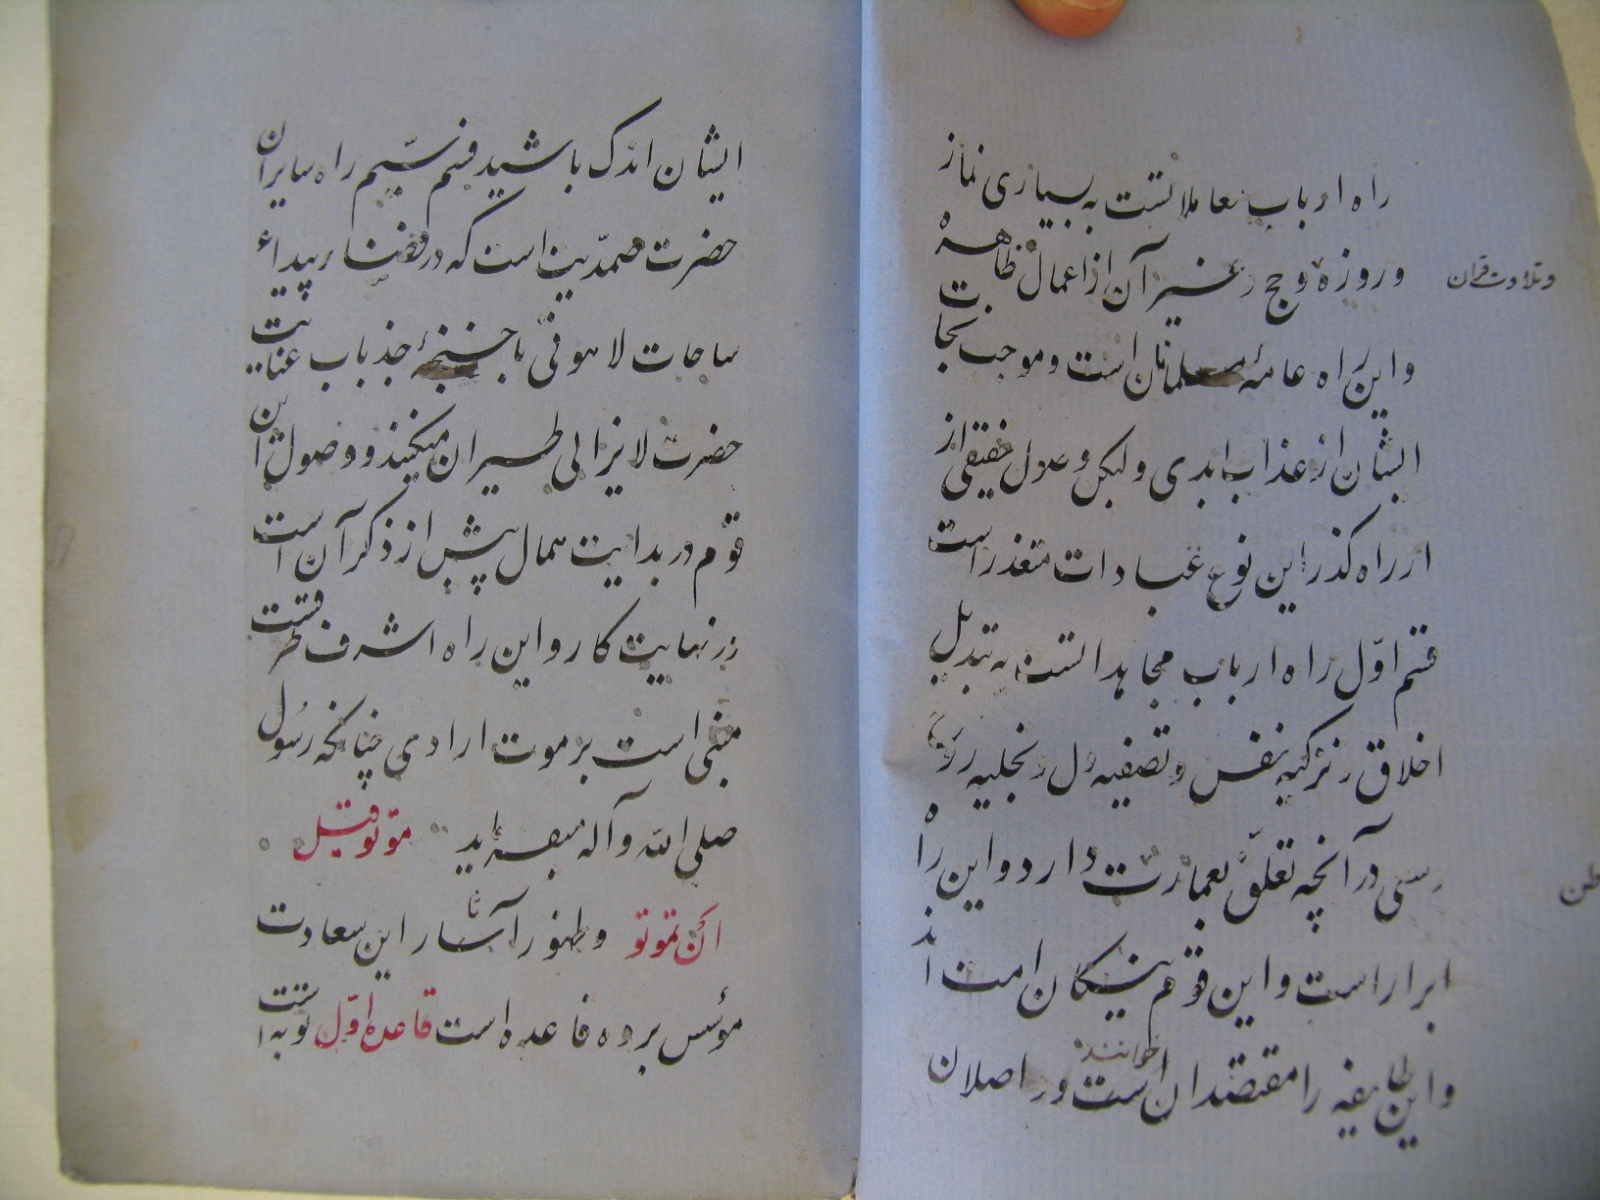 راه ارباب معاملاتست به بسیاری نماز
و روزه و حج و غیر آن از اعمال ظاهره
و تلاوت قران
و این راه عامهٔ مسلمانان است و موجب نجات
ایشان از عذاب ابدی ولیکن وصول حقیقی از
از راه کذر این نوع عبادات متعذر است
قسم اوّل راه ارباب مجاهداتست به تبدیل
اخلاق و تزکیه نفس و تصفیه دل و تجلیه روح
و سعی در آنچه تعلّق بعمارت دارد و این راه
ابرار است و این قوم نیکان امت اند
و این طایفه را مقتصدان خوانند است و واصلان
ایشان اندک باشید قسم سیّم راه سایران
حضرت صمدّیت است که در فضاء بیداء
ساحات لاهوتی باجنحهٔ جذبات عنایت
حضرت لایزالی طیران میکنند و وصول این
قوم در بدایت همال پیش از ذکر آن است
در نهایت کار و این راه اشرف طرقست
مبنی است بر موت ارادی چنانکه رسول
صلی الله و آله میفرماید موتو قبل
ان تموتو و ظهور آثار این سعادت
مؤسس برده قاعده است قاعدهٔ اوّل توبه است